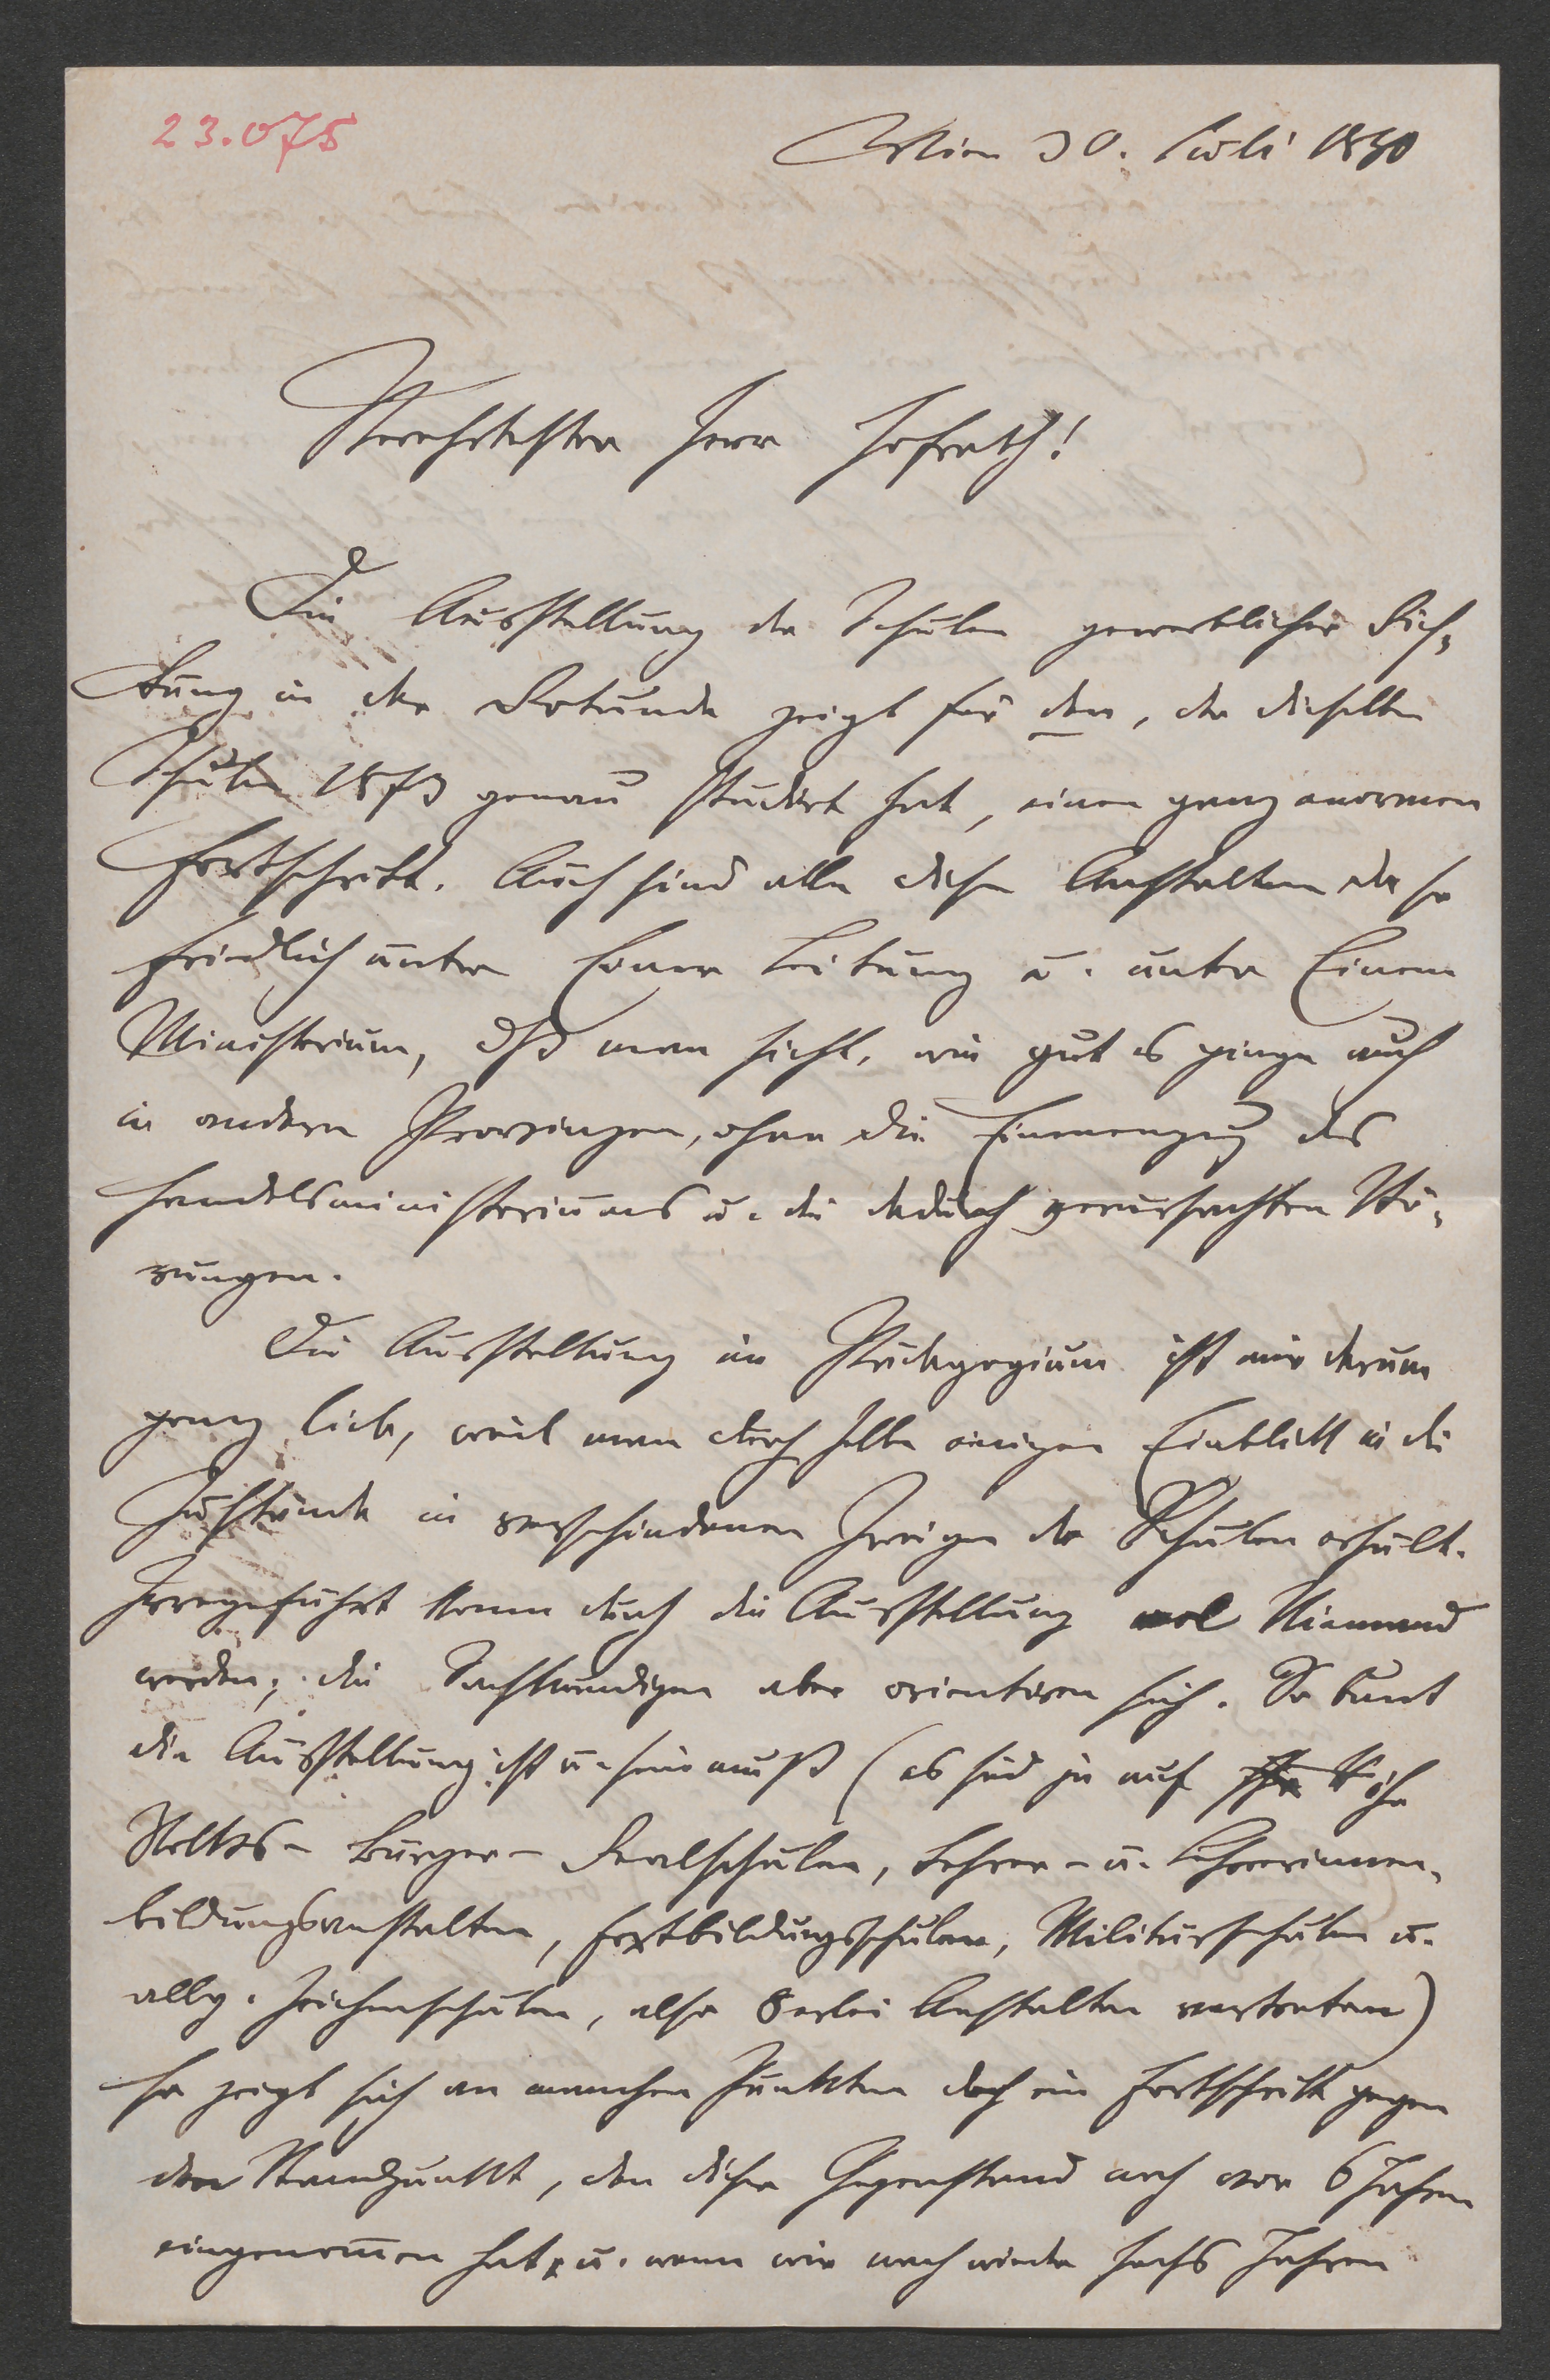 23.075
Wien 30. Juli 1880
Verehrtester Herr Hofrath!
Die Ausstellung der Schulen gewerblicher Rich-
tung in der Rotunde zeigt für den, der dieselben
Schulen 1873 genau studirt hat, einen ganz enormen
Fortschritt. Auch sind alle diese Anstalten da so
friedlich unter Einer Leitung u. unter Einem
Ministerium, dß man sieht, wie gut es ginge auch
in andern Provinzen, ohne die Einmengung des
Handelsministeriums u. die dadurch verursachten Stö-
rungen.
Die Ausstellung im Pädagogium ist mir darum
ganz lieb, weil man durch selbe einigen Einblick in die
Zustände in verschiedenen Zweigen der Schulen erhält.
Irregeführt kann durch die Ausstellung wol Niemand
werden; die Sachkundigen aber orientiren sich. So bunt
die Ausstellung ist u. sein muß (es sind ja auf ihr
Volks- Bürger- Realschulen, Lehrer- u. Lehrerinnen-
bildungsanstalten, Fortbildungsschulen, Militärschulen u.
allg. Zeichenschulen, also 8erlei Anstalten vertreten)
so zeigt sich an manchen Punkten doch ein Fortschritt gegen
den Standpunkt, den dieser Gegenstand noch vor 6 Jahren
eingenommen hat, u. wenn wir nach wieder sechs Jahren